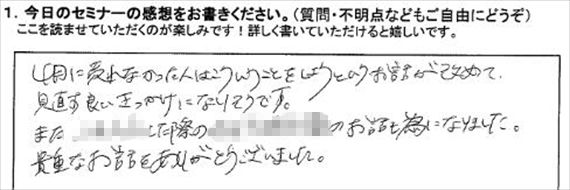 1. 今日のセミナーの感想をお書きください。(質問・不明点などもご自由にどうぞ)
ここを読ませていただくのが楽しみです！詳しく書いていただけると嬉しいです。
4月に売れなかった人はこういうことをしようというお話が改めて
見直す良いきっかけになりそうです。
また した際の のお話も為になりました。
貴重なお話をありがとうございました。